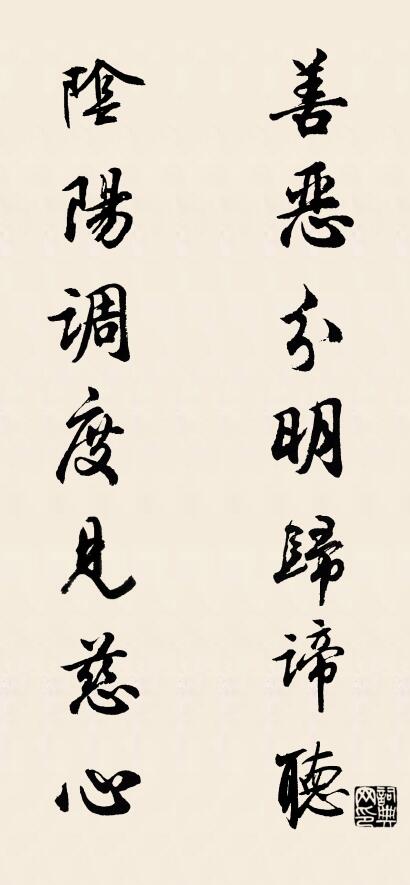 善惡分明歸諦聽
陰陽調度見慈心
詞典網印